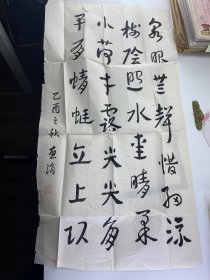 泉眼無聲惜細流
樹陰照水愛晴柔
小荷才露尖尖角
早有蜻蜓立上頭
乙酉之秋